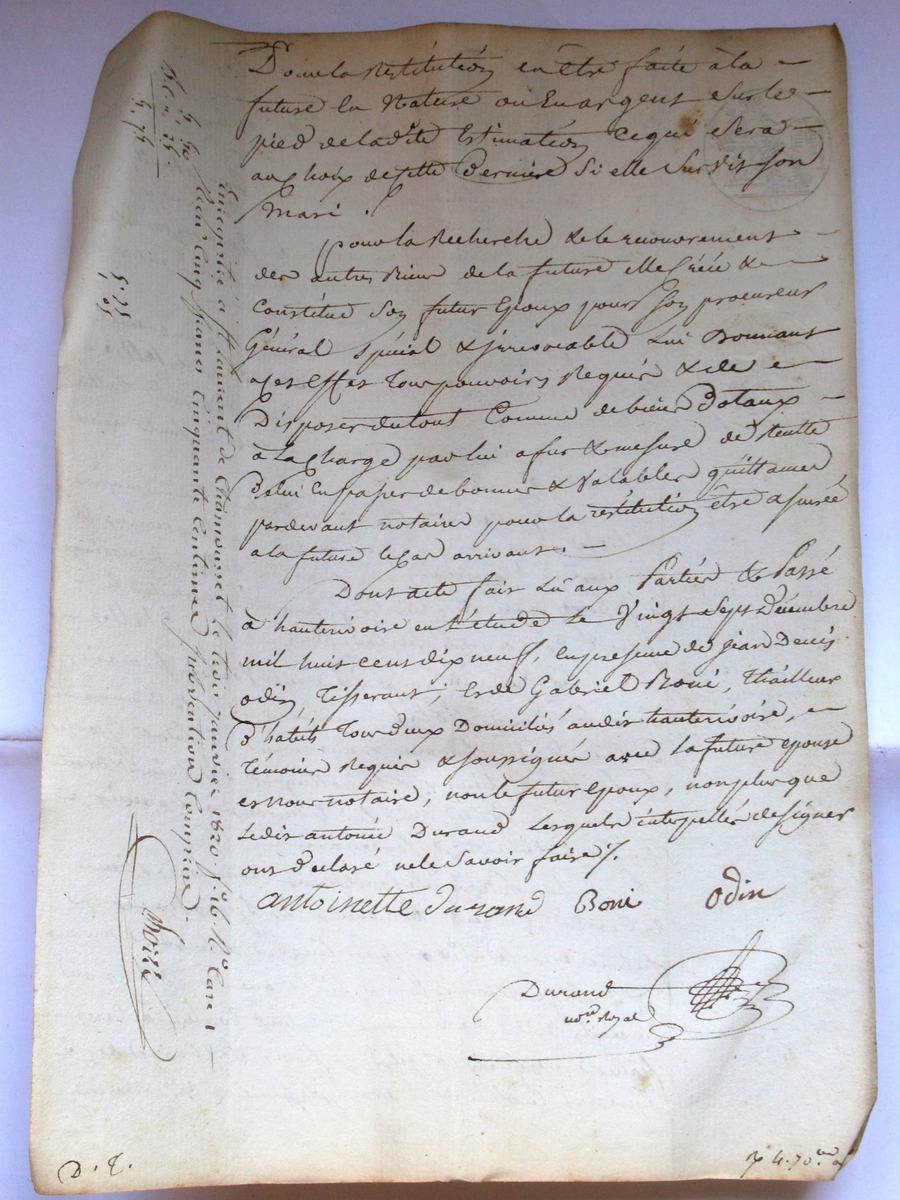 Dont la Restitution en être faite à la
future En Nature ou En argent Sur le
pied de ladite Estimation ce qui Sera
au Choix de cette Derniere Si elle Survit Son
Mari.
pour la Recherche & le recouvrement
des autres Biens de la future elle Créée &
Constitue Son futur Epoux pour Son procureur
Général Spécial & irrevocable Lui Donnant
a Cet Effet Tous pouvoirs Requis & de
Disposer du tout Comme de biens Dotaux
à La Charge par lui a fur & mesure de Recette
D'en passer de bonnes & Valables quittances
pardevant notaire pour la restitution être assurée
a la future le Cas arrivant.
Dont acte fait Lû aux Parties & Passé
à hauterivoire en L'étude Le Vingt Sept Décembre
mil huit cent dix neuf, en presence de Jean Denis
odin, Tisserant, et de Gabriel Boni, Thailleur
D'habits Tous deux Domiciliés audit hauterivoire,
Témoins Requis & Soussignés avec La future epouse
et Nous notaire, non le futur Epoux, non plus que
Ledit antoine Durand Lesquels interpellés de Signer
ont Déclaré ne le Savoir faire
antoinette durand Boni Odin
Durand
nore Royal
Enregistré à St Laurent de Chamousset le dix janvier 1820. fo 16. Ro Case 1
cinq francs Cinquante Centimes Subvention Comprise
5. 25
D. T.
4. 70